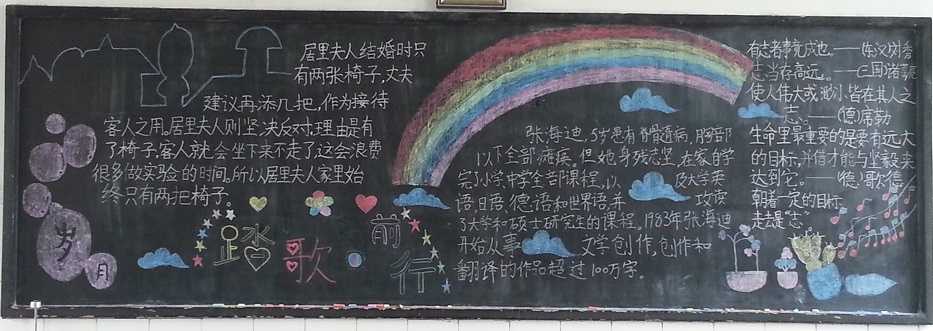 居里夫人结婚时只
有两张椅子,丈夫
建议再添几把,作为接待
客人之用。居里夫人则坚决反对,理由是有
了椅子,客人就会坐下来不走了,这会浪费
很多做实验的时间。所以居里夫人家里始
终只有两把椅子。
岁月
踏歌前行
张海迪,5岁患有脊髓病,胸部
以下全部瘫痪,但她身残志坚,在家自学
完了小学、中学全部课程,以及大学英
语、日语、德语和世界语,并攻读
了大学和硕士研究生的课程。1983年张海迪
开始从事文学创作,创作和
翻译的作品超过100万字。
有志者事竟成也。——《东汉》刘秀
志当存高远。——《三国》诸葛亮
使人伟大或渺小,皆在其人之
志。——(德)席勒
生命里最重要的是要有远大
的目标,并借才能与坚毅来
达到它。——(德)歌德
朝着一定的目标
走去是“志”